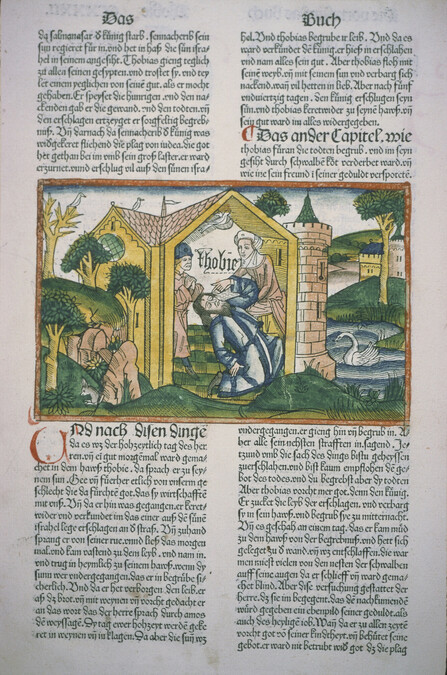 Das Buch
dz salmanasar d̾ künig starb. sennacherib sein
sun regieret für in. vnd het in haß die sün isra=
hel in seinem angesiht. Thobias gieng teglich
zu allen seinen gesypten. vnd trostet sy. vnd tey=
let einem yeglichen von seine gut. als er mocht
gehaben. Er speyset die hungrigen. vnd den na=
ckenden gab er die gewand. vnd den todten. vñ
den erschlagen erzeyget er sorgfellig begreb=
nuß. Vñ darnach da sennacherib d̾ künig was
widgekeret fliehend die plag von iudea. die got
her gethan bei im vmb sein groß laster. er ward
erzurnet. vnnd erschlug vil auß den sünen isra=
hel. Vnd thobias begrube ir leib. Vnd da es
ward verkündet dē künig. er hieß in erschlahen
vnd nam alles sein gut. Aber thobias floh mit
seinē weyb. vñ mit seinem sun vnd verbarg sich
nackend. wañ vil hetten in lieb. Aber nach fünf
vnduiertzig tagen. den künig erschlugen seyn
sün. vnd thobias keret wider zu seynē hawß. vñ
sein gut ward im alles widergegeben.
Das ander Capitel. wie
thobias füran die todten begrub. vnd im seyn
gesiht durch schwalbē kot verderbet ward. vñ
wie ine sein freund in seiner gedult versporetē.
thobie
Vnd nach disen dingē
da es wz der hohzeytlich tag des her
ren. vñ ein gut morgēmal ward gema=
chet in dem hawß thobie. da sprach er zu sey=
nem sun. Gee vñ fuer her etlich von vnserm ge
schlecht die da fürchtē got. das sy wirtschafftē
mit vnß. Vñ da er hin was gegangen. er keret
wider vnd verkündet im das einer auß dē sünē
israhel lege erschlagen an d̾ straß. Vñ zuhand
sprang er von seiner rue. vnnd ließ das morgen
mal. vnd kam vastend zu dem leyb. vnd nam in.
vnd trug in heymlich zu seinem hawß. wenn dy
sunn wer vndergegangen. das er in begrübe si=
cherlich. Vnd da er het verborgen. den leib. er
aß dz brot. vñ mit weynen vñ vorcht gedacht er
an das wort das der herre sprach durch amos
dē weyssagē. Dy tag ewer hohzeyt werdē geke
ret in weynen vñ in klagen. Da aber die suñ wz
vndergegangen. er gieng hin vñ begrub in. A=
ber alle sein nehsten strafften in. sagend. Je=
tzund vmb die sach des dings bistu geheyssen
zuerschlahen. vnd bist kaum empflohen dē ge=
bot des todes. vnd du begrebst aber dy todten
Aber thobias vorcht mer got. denn den künig.
Er zucket die leyb der erschlagen. vnd verbarg
sy in sein hawß. vnd begrub syc zu mitternacht.
Vñ es geschah an einem tag. das er kam müd
zu dem hawß von der begrebnuß. vnd hett sich
geleget zu d̾ wand. vñ wz entschlaffen. die war
men miest vielen von den nesten der schwalben
auff seine augen da er schlieff vñ ward gema=
chet blind. Aber dise versuchung gestattet der
herre. dz sie im begegent. das dē nachkumendē
würd gegeben ein ebenpild seiner gedult. als
auch des heyligē iob. Wañ da er zu allen zeytē
vorcht got võ seiner kindtheyt. vñ behütet seine
gebot. er ward nit betrubt wid̾ got dz die plag